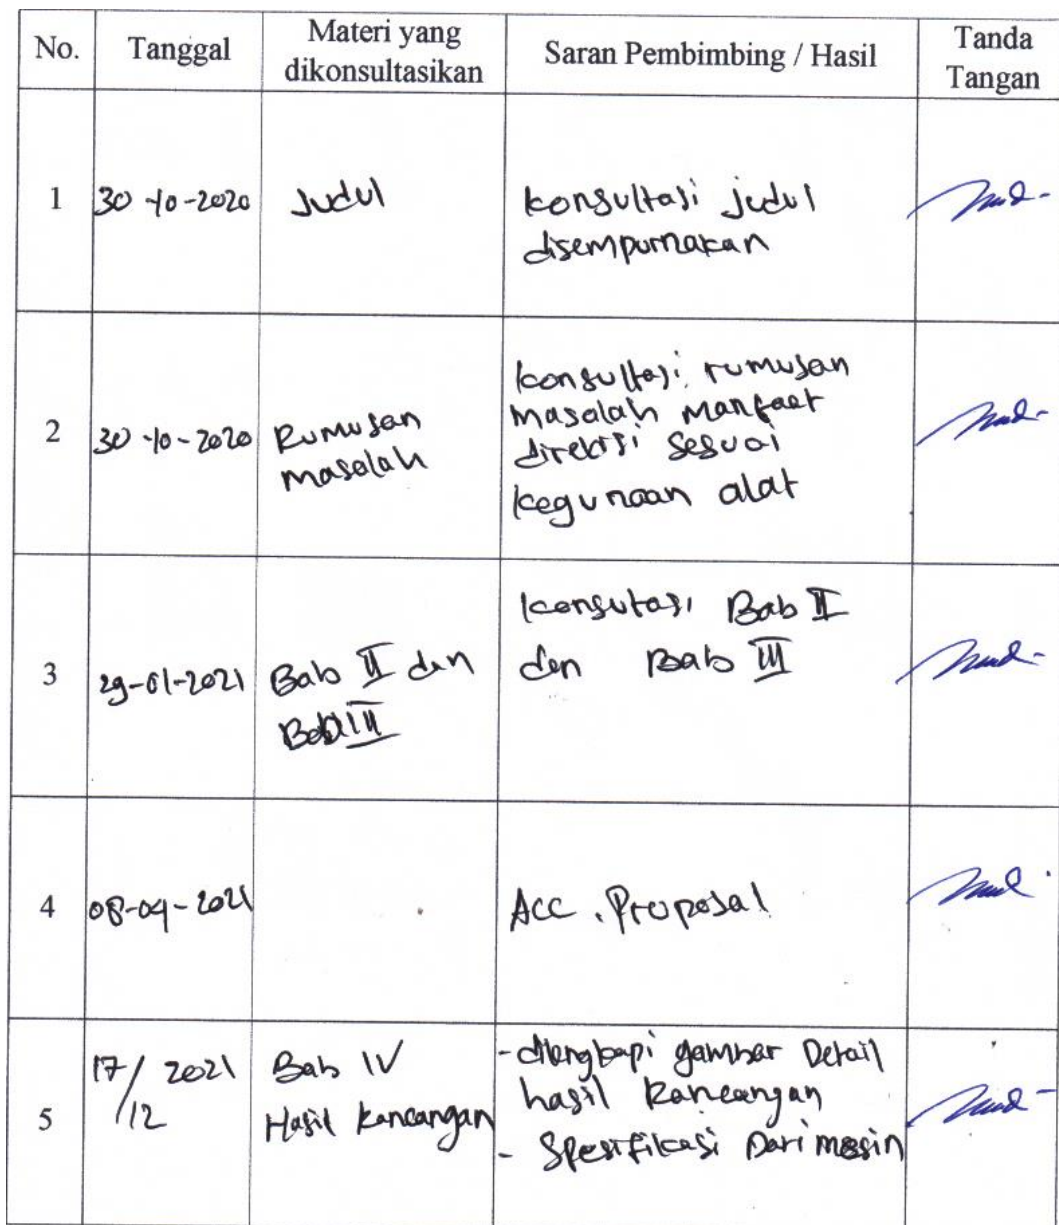 No.
Tanggal
Materi yang
dikonsultasikan
Saran Pembimbing / Hasil
Tanda
Tangan
1
30-10-2020
Judul
konsultasi judul
disempurnakan
2
30-10-2020
Rumusan
masalah
konsultasi rumusan
masalah manfaat
direktsi sesuai
kegunaan alat
3
29-01-2021
Bab II dan
Bab III
konsutasi Bab II
dan Bab III
4
08-04-2021
ACC. Proposal
5
17/12 2021
Bab IV
Hasil Rancangan
- dilengkapi gambar Detail
hasil Rancangan
- Spesifikasi Dari mesin